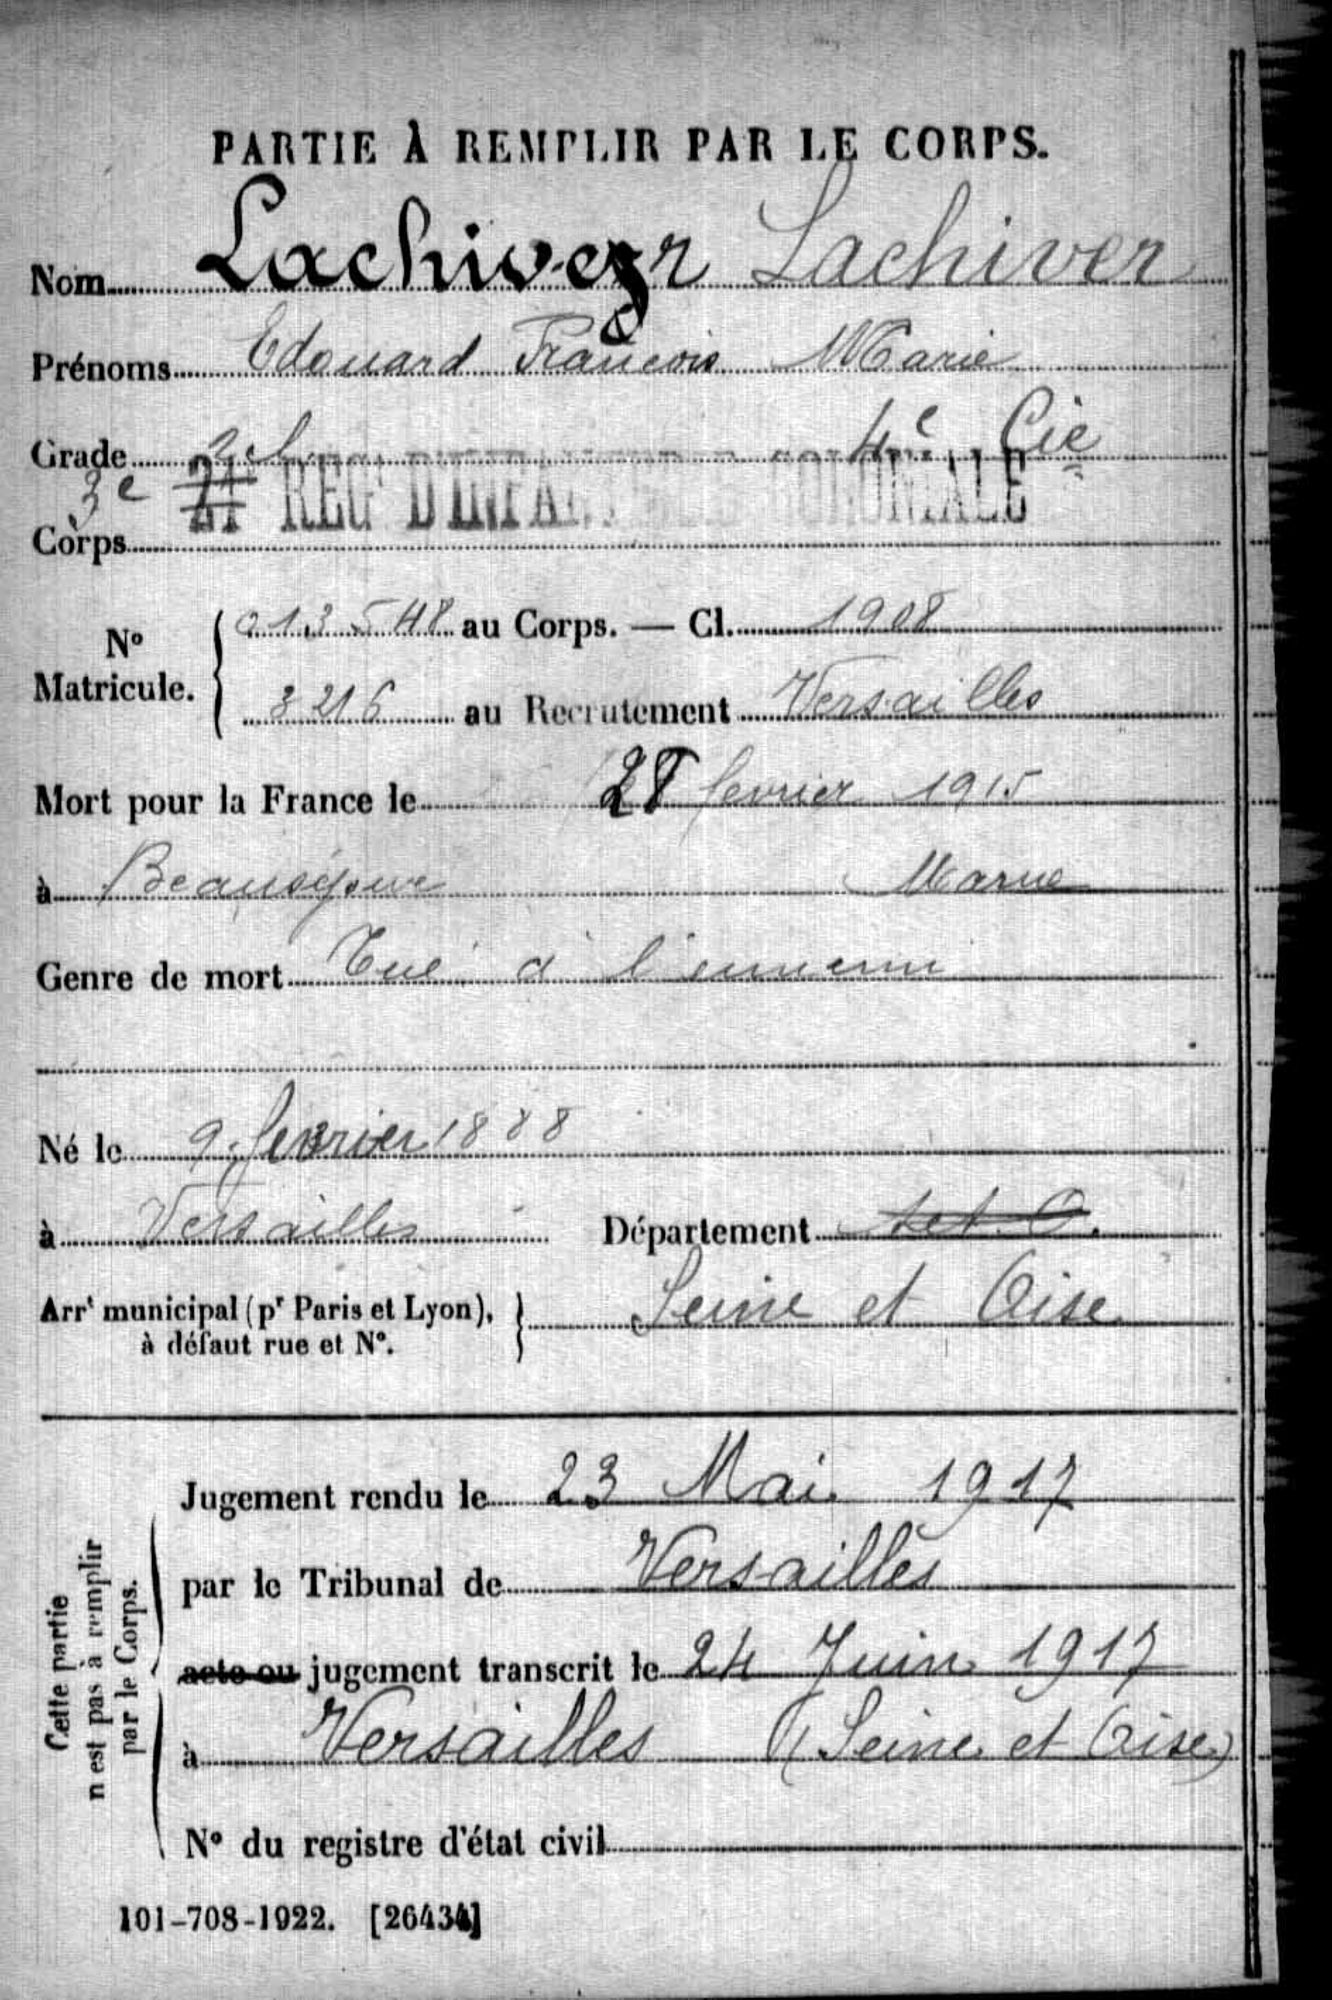 PARTIE À REMPLIR PAR LE CORPS.
Nom Lachiver Lachiver
Prénoms Edouard François Marie
Grade 2e Cl 4e Cie
3e 21 REGt D'INFANTERIE COLONIALE
Corps
No Matricule. 013548 au Corps. — Cl. 1908
3216 au Recrutement Versailles
Mort pour la France le 28 fevrier 1915
à Beauséjour Marne
Genre de mort Tué à l'ennemi
Né le 9 fevrier 1888
à Versailles Département S et O.
Arrt municipal (pr Paris et Lyon), Seine et Oise
à défaut rue et No.
Cette partie n'est pas à remplir par le Corps.
Jugement rendu le 23 Mai 1917
par le Tribunal de Versailles
acte ou jugement transcrit le 24 Juin 1917
à Versailles (Seine et Oise)
No du registre d'état civil
101-708-1922. [26434]